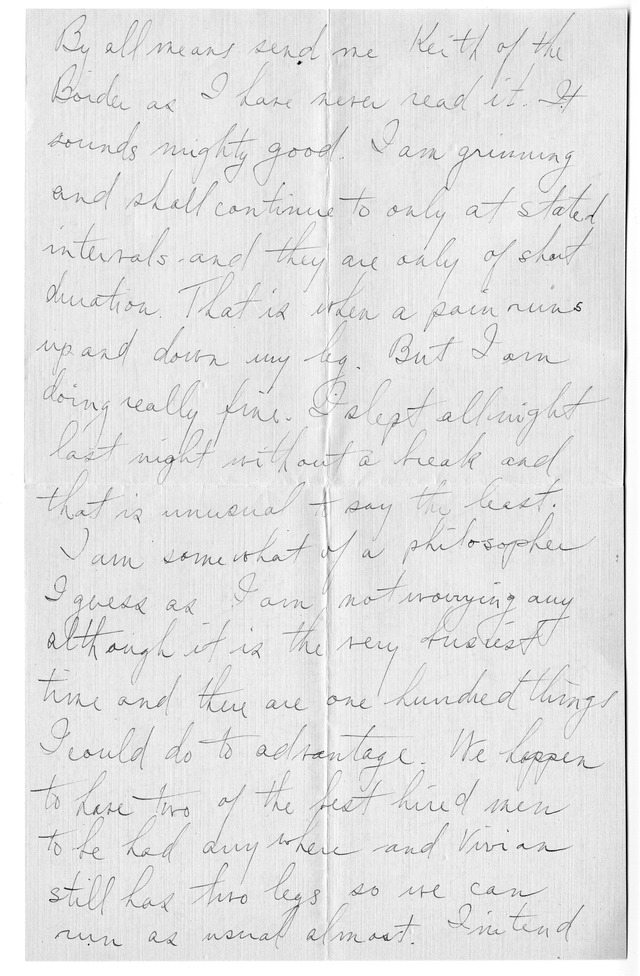 By all means send me Keith of the
Border as I have never read it. It
sounds mighty good. I am grinning
and shall continue to only at stated
intervals and they are only of short
duration. That is when a pain runs
up and down my leg. But I am
doing really fine. I slept all night
last night without a break and
that is unusual to say the least.
I am somewhat of a philosopher
I guess as I am not worrying any
although it is the very busiest
time and there are one hundred things
I could do to advantage. We happen
to have two of the best hired men
to be had anywhere and Vivian
still has two legs so we can
run as usual almost. I intend